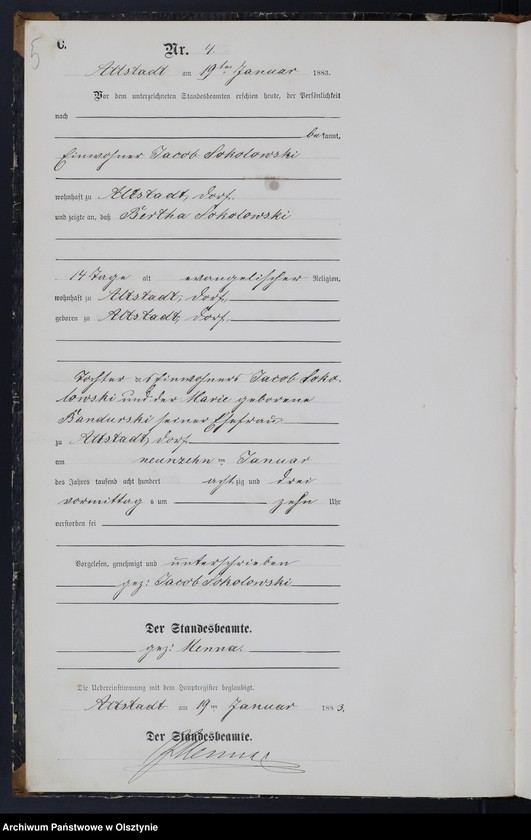 5
C.
Nr. 4.
Altstadt am 19ten Januar 1883.
Vor dem unterzeichneten Standesbeamten erschien heute, der Persönlichkeit
nach
bekannt,
Einwohner Jacob Sokolowski
wohnhaft zu Altstadt, dorf.
und zeigte an, daß Bertha Sokolowski
14 Tage alt evangelischer Religion,
wohnhaft zu Altstadt, dorf,
geboren zu Altstadt, dorf,
Tochter des Einwohners Jacob Soko-
lowski und der Marie geborene
Bandurski seiner Ehefrau
zu Altstadt, dorf
am neunzehn ten Januar
des Jahres tausend acht hundert achtzig und drei
vormittags um zehn Uhr
verstorben sei
Vorgelesen, genehmigt und unterschrieben
gez: Jacob Sokolowski
Der Standesbeamte.
gez: Menna.
Die Uebereinstimmung mit dem Hauptregister beglaubigt.
Altstadt am 19ten Januar 1883.
Der Standesbeamte.
Menna
Archiwum Państwowe w Olsztynie